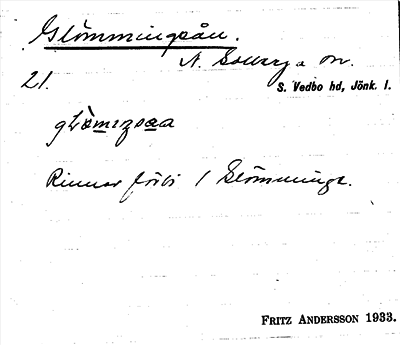 Glömmingsån.
N. Solberga sn.
21. S. Vedbo hd, Jönk. l.
Rinner förbi / Glömminge.
FRITZ ANDERSSON 1933.